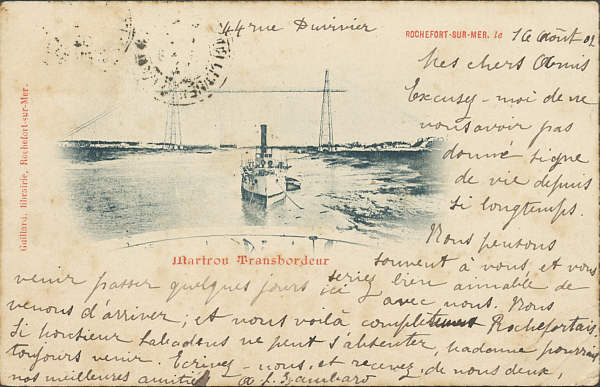 44 rue Duvivier
ROCHEFORT-SUR-MER, le 16 Août 01
Mes chers Amis
Excusez-moi de ne
vous avoir pas
donné signe
de vie depuis
si longtemps.
Nous pensons
souvent à vous, et vous
seriez bien aimable de
venir passer quelques jours ici avec nous. Nous
venons d'arriver; et nous voilà, complètement Rochefortais.
Si monsieur ne peut s'absenter, madame pourrait
toujours venir. Ecrivez-nous, et recevez, de nous deux,
nos meilleures amitiés
Martrou Transbordeur
Gaillard, librairie, Rochefort-sur-Mer.